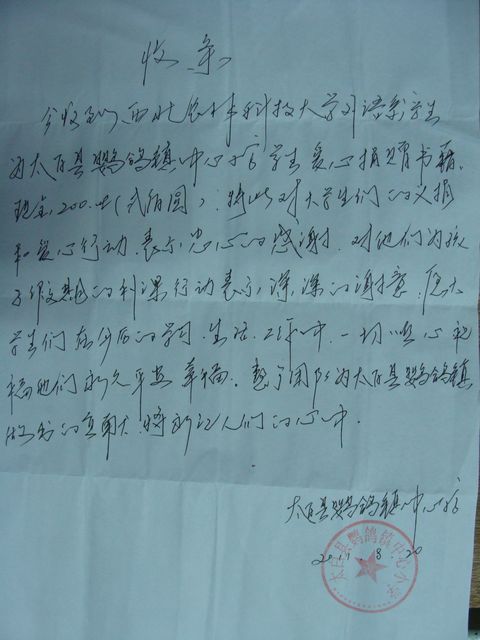 收条
今收到西北农林科技大学外语系学生
为太白县鹦鸽镇中心小学学生爱心捐赠书籍、
现金200.00(贰佰圆)。特此对大学生们的义捐
和爱心行动,表示忠心的感谢。对他们为孩
子们的行动表示深深的谢意。愿大
学生们在今后的学习、生活、工作中,一切顺心,祝
福他们永久平安幸福。团队为太白县鹦鸽镇
的贡献大,将永记人们的心中。
太白县鹦鸽镇中心小学
2011.8.20
太白县鹦鸽镇中心小学